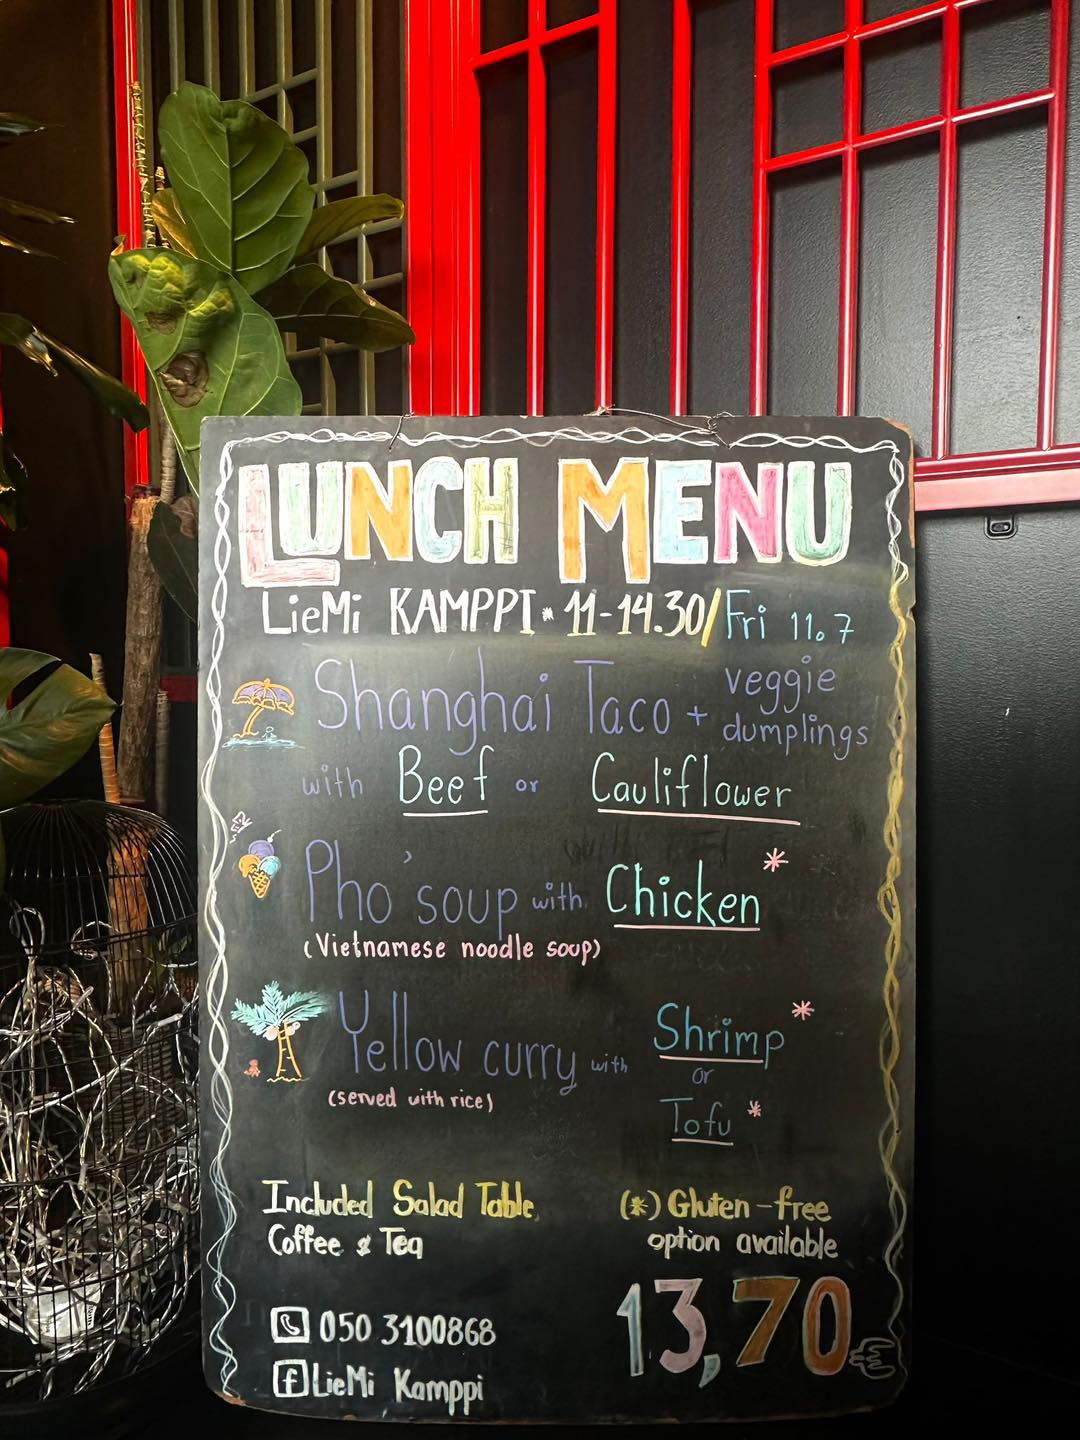 LUNCH MENU
LieMi KAMPPI * 11-14.30/Fri 11.7
Shanghai Taco + veggie dumplings
with Beef or Cauliflower
Pho' soup with Chicken *
(Vietnamese noodle soup)
Yellow curry with Shrimp *
or
(served with rice)
Tofu *
Included Salad Table
Coffee & Tea
(*) Gluten-free
option available
13,70€
050 3100868
LieMi Kamppi